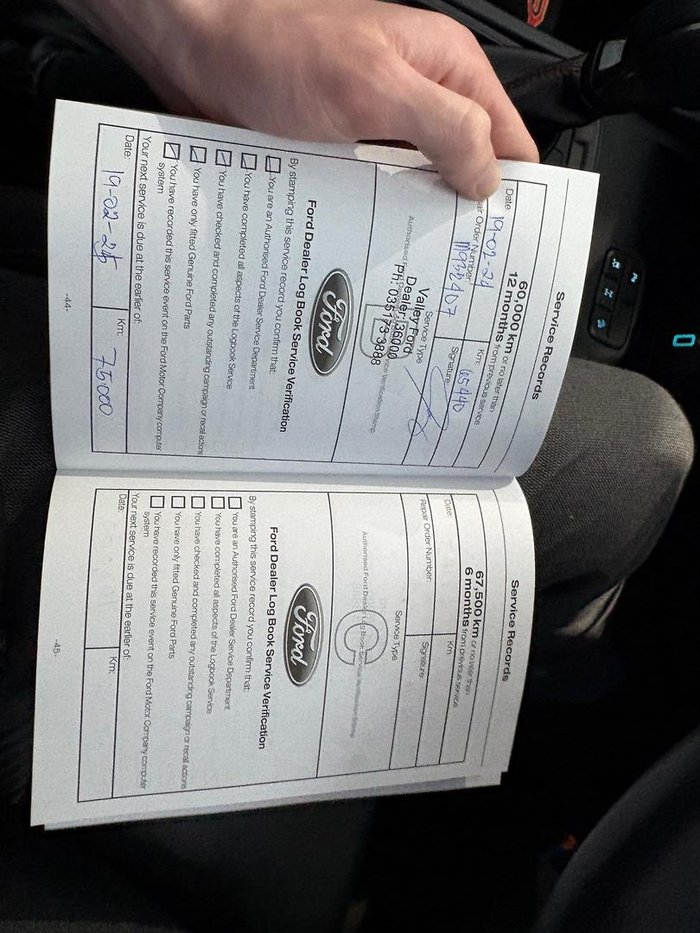 Service Records
60,000 km or no later than
12 months from previous service
Date: 19-02-24
Km: 65440
Order Number:
Signature:
Service Type
Valley Ford
Dealer: 36000
Ford Dealer Log Book Service Verification
By stamping this service record you confirm that:
You are an Authorised Ford Dealer Service Department
You have completed all aspects of the Logbook Service
You have checked and completed any outstanding campaign or recall actions
You have only fitted Genuine Ford Parts
You have recorded this service event on the Ford Motor Company computer
system
Your next service is due at the earlier of:
Date: 19-02-25
Km: 75000
-44-
Service Records
67,500 km or no later than
6 months from previous service
Date:
Km:
Repair Order Number:
Signature:
Service Type
C
Authorised Ford Dealer Log Book Service Verification Stamp
Ford
Ford Dealer Log Book Service Verification
By stamping this service record you confirm that:
You are an Authorised Ford Dealer Service Department
You have completed all aspects of the Logbook Service
You have checked and completed any outstanding campaign or recall actions
You have only fitted Genuine Ford Parts
You have recorded this service event on the Ford Motor Company computer
system
Your next service is due at the earlier of:
Date:
Km:
-45-